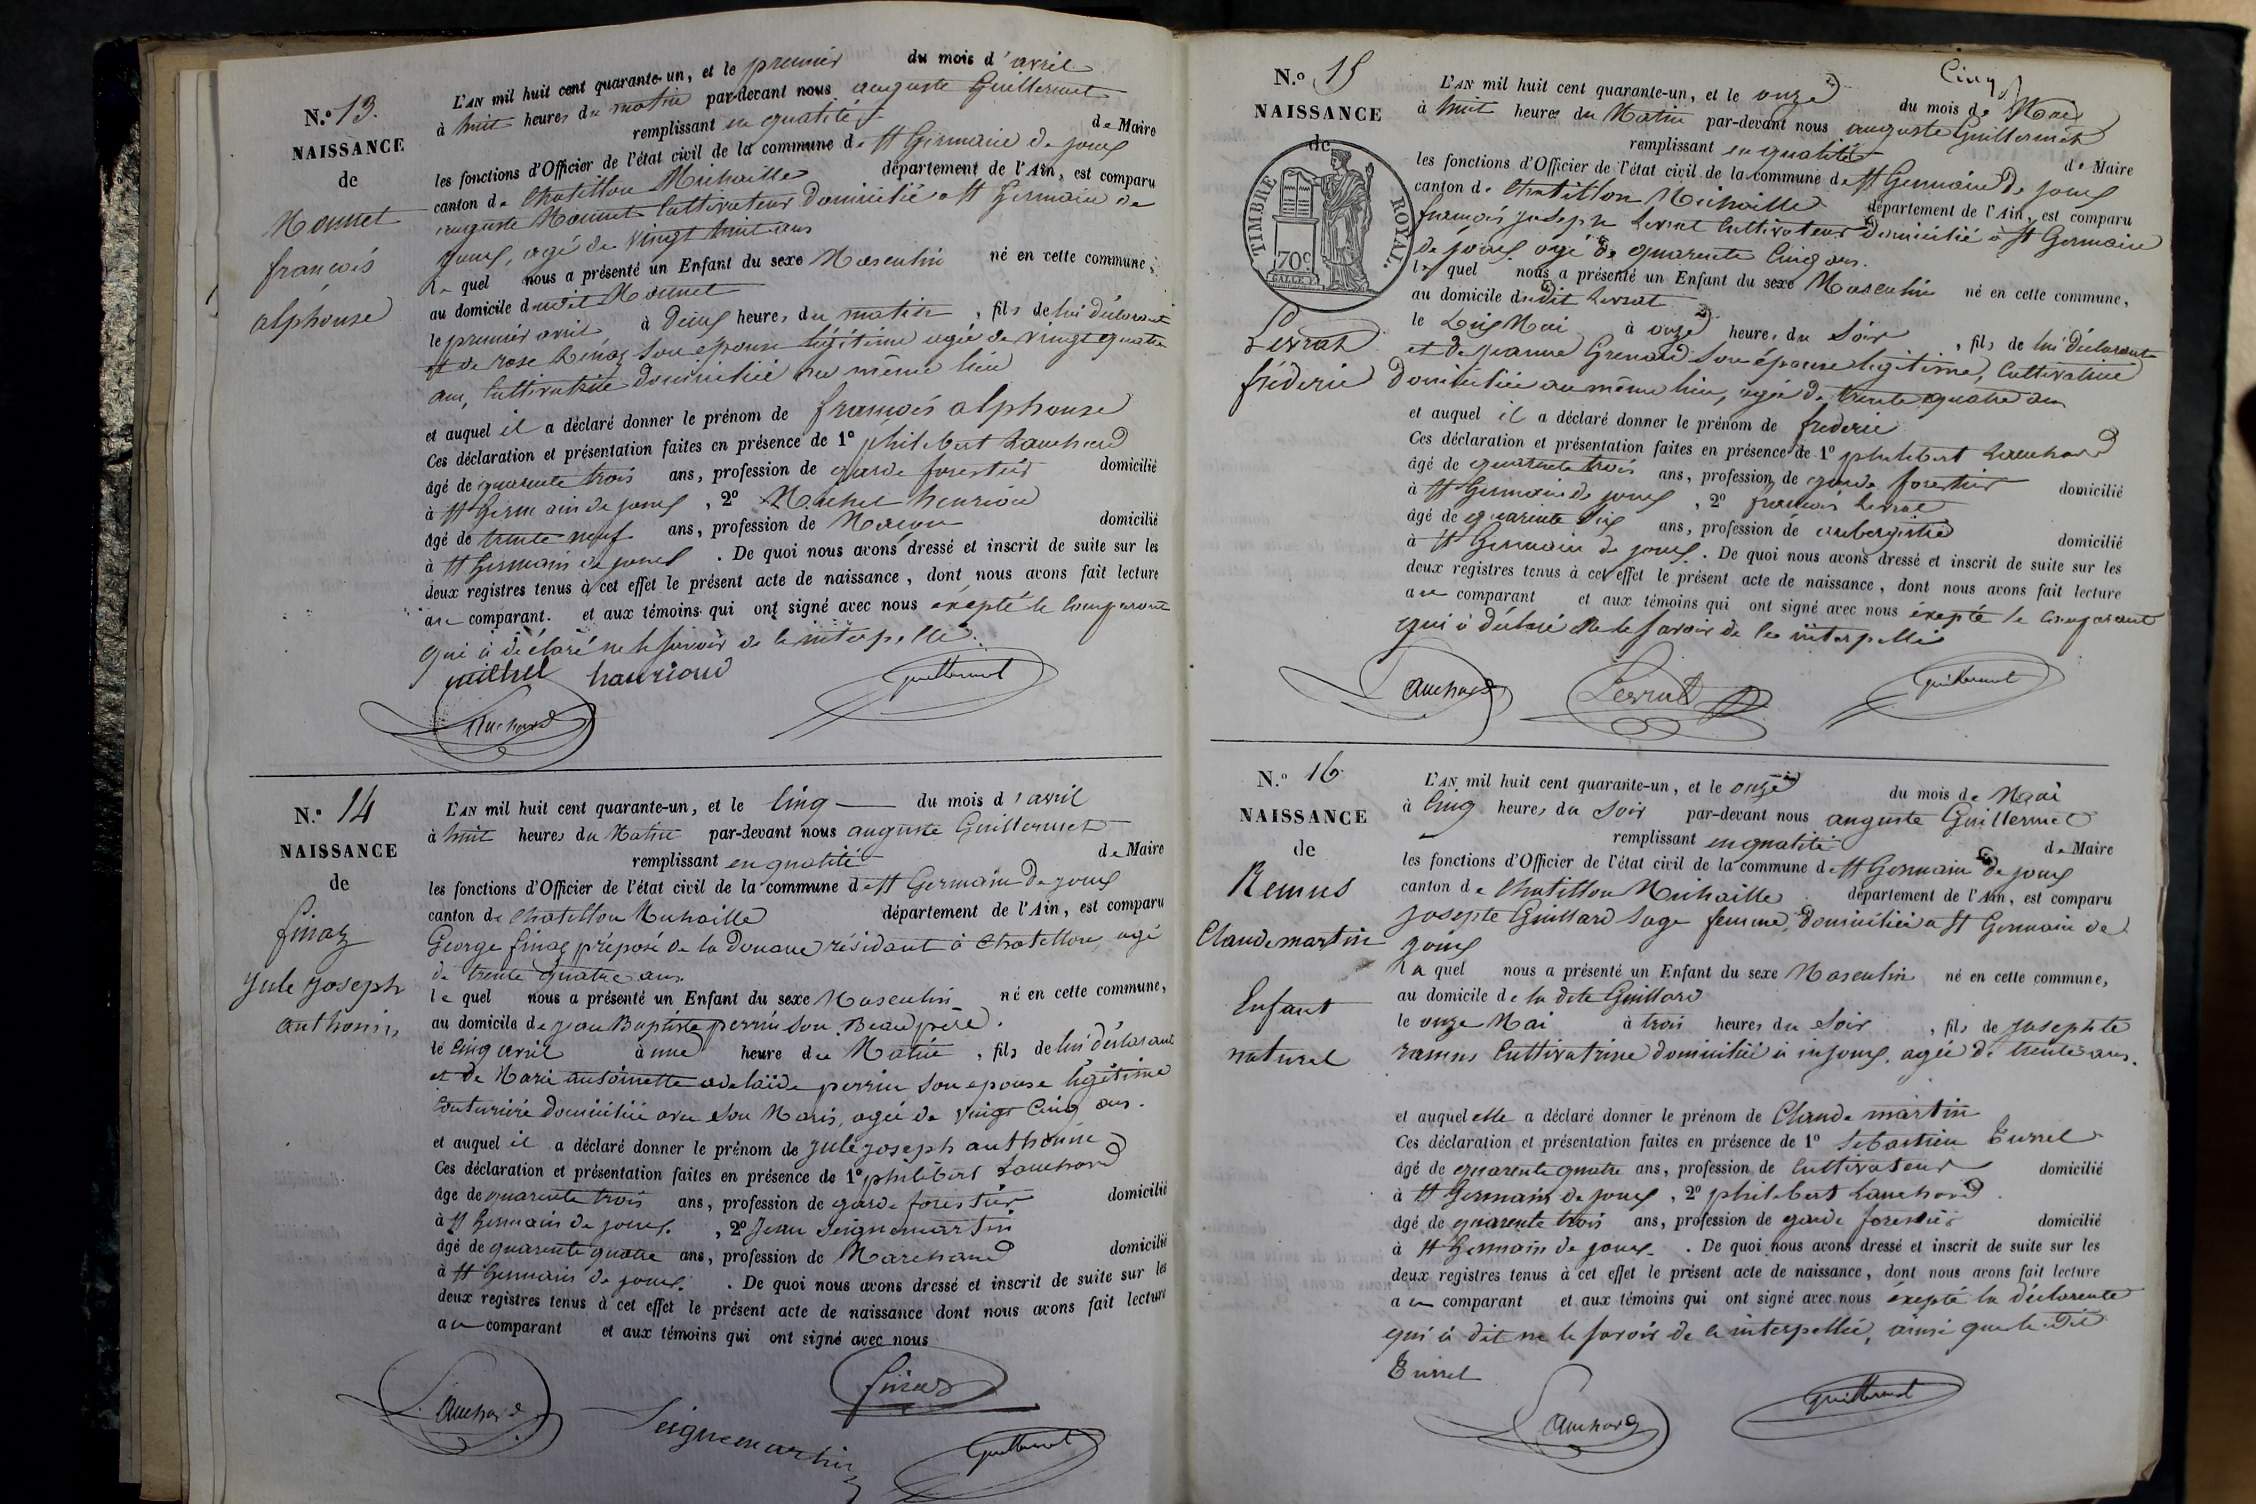 N.º 13.
NAISSANCE
de
Monnet
françois
alphonse
L'AN mil huit cent quarante-un, et le premier du mois d'avril
à huit heures du matin par-devant nous auguste Guillermet
remplissant en qualité de Maire
les fonctions d'Officier de l'état civil de la commune de St Germain de joux
canton de Chatillon Michaille département de l'Ain, est comparu
auguste Monnet Cultivateur Domicilié a St Germain de
joux, agé de vingt huit ans
le quel nous a présenté un Enfant du sexe Masculin né en cette commune,
au domicile dudit Monnet
le premier avril à Deux heures du matin, fils de lui déclarant
et de rose son épouse légitime agée de vingt quatre
ans, Cultivatrice domiciliée au même lieu
et auquel il a déclaré donner le prénom de françois alphonse
Ces déclaration et présentation faites en présence de 1º philibert Lauchard
âgé de quarente trois ans, profession de garde forestier domicilié
à St Germain de joux, 2º Michel henrion
âgé de trente neuf ans, profession de Maçon domicilié
à St Germain de joux. De quoi nous avons dressé et inscrit de suite sur les
deux registres tenus à cet effet le présent acte de naissance, dont nous avons fait lecture
au comparant. et aux témoins qui ont signé avec nous éxepté le Comparant
qui à déclaré ne le savoir de le interpellé.
michel hanrioud Guillermet
Lauchard
N.º 14
NAISSANCE
de
finaz
jule joseph
anthonin
L'AN mil huit cent quarante-un, et le Cinq du mois d'avril
à huit heures du Matin par-devant nous auguste Guillermet
remplissant en qualité de Maire
les fonctions d'Officier de l'état civil de la commune de St Germain de joux
canton de Chatillon Michaille département de l'Ain, est comparu
George finaz préposé de la Douane résidant à Chatillon, agé
de trente quatre ans
le quel nous a présenté un Enfant du sexe Masculin né en cette commune,
au domicile de jean Baptiste perrin son Beau père.
le Cinq avril à une heure du Matin, fils de lui déclarant
et de Marie antoinette adelaïde perrin son epouse légitime
Couturière domiciliée avec son Maris, agée de vingt Cinq ans.
et auquel il a déclaré donner le prénom de jule joseph anthonin
Ces déclaration et présentation faites en présence de 1º philibert Lauchard
âgé de quarente trois ans, profession de garde forestier domicilié
à St Germain de joux, 2º Jean Seignemartin
âgé de quarente quatre ans, profession de Marchand domicilié
à St Germain de joux. De quoi nous avons dressé et inscrit de suite sur les
deux registres tenus à cet effet le présent acte de naissance dont nous avons fait lecture
au comparant et aux témoins qui ont signé avec nous
finaz
Lauchard Seignemartin Guillermet
N.º 15
NAISSANCE
de
TIMBRE ROYAL.
70c
Levrat
fréderic
Cinq
L'AN mil huit cent quarante-un, et le onze du mois de Mai
à huit heures du Matin par-devant nous auguste Guillermet
remplissant en qualité de Maire
les fonctions d'Officier de l'état civil de la commune de St Germain de joux
canton de Chatillon Michaille département de l'Ain, est comparu
françois joseph Levrat Cultivateur domicilié à St Germain
de joux agé de quarente Cinq ans.
le quel nous a présenté un Enfant du sexe Masculin né en cette commune,
au domicile dudit Levrat
le Dix Mai à onze heures du Soir, fils de lui déclarant
et de jeanne Grenard son épouse legitime, Cultivatrice
Domiciliée au même lieu, agée de trente quatre ans
et auquel il a déclaré donner le prénom de fréderic
Ces déclaration et présentation faites en présence de 1º philibert Lauchard
âgé de quarente trois ans, profession de garde forestier domicilié
à St Germain de joux, 2º françois Levrat
âgé de quarente Six ans, profession de aubergiste domicilié
à St Germain de joux. De quoi nous avons dressé et inscrit de suite sur les
deux registres tenus à cet effet le présent acte de naissance, dont nous avons fait lecture
au comparant et aux témoins qui ont signé avec nous éxepté le Comparant
qui à déclaré ne le savoir de le interpellé
Lauchard Levrat Guillermet
N.º 16
NAISSANCE
de
Remus
Claude martin
Enfant
naturel
L'AN mil huit cent quarante-un, et le onze du mois de Mai
à Cinq heures du Soir par-devant nous auguste Guillermet
remplissant en qualité de Maire
les fonctions d'Officier de l'état civil de la commune de St Germain de joux
canton de Chatillon Michaille département de l'Ain, est comparu
josepte Guillard Sage femme, domiciliée a St Germain de
joux
la quel nous a présenté un Enfant du sexe Masculin né en cette commune,
au domicile de la dite Guillard
le onze Mai à trois heures du Soir, fils de josephte
ramus Cultivatrice domiciliée à injoux, agée de trente ans.
et auquel elle a déclaré donner le prénom de Claude martin
Ces déclaration et présentation faites en présence de 1º Sébastien Turrel
âgé de quarente quatre ans, profession de Cultivateur domicilié
à St Germain de joux, 2º philibert Lauchard
âgé de quarente trois ans, profession de garde forestier domicilié
à St Germain de joux. De quoi nous avons dressé et inscrit de suite sur les
deux registres tenus à cet effet le présent acte de naissance, dont nous avons fait lecture
au comparant et aux témoins qui ont signé avec nous éxepté la déclarente
qui à dit ne le savoir de le interpellée, ainsi que le dit
Turrel
Lauchard Guillermet